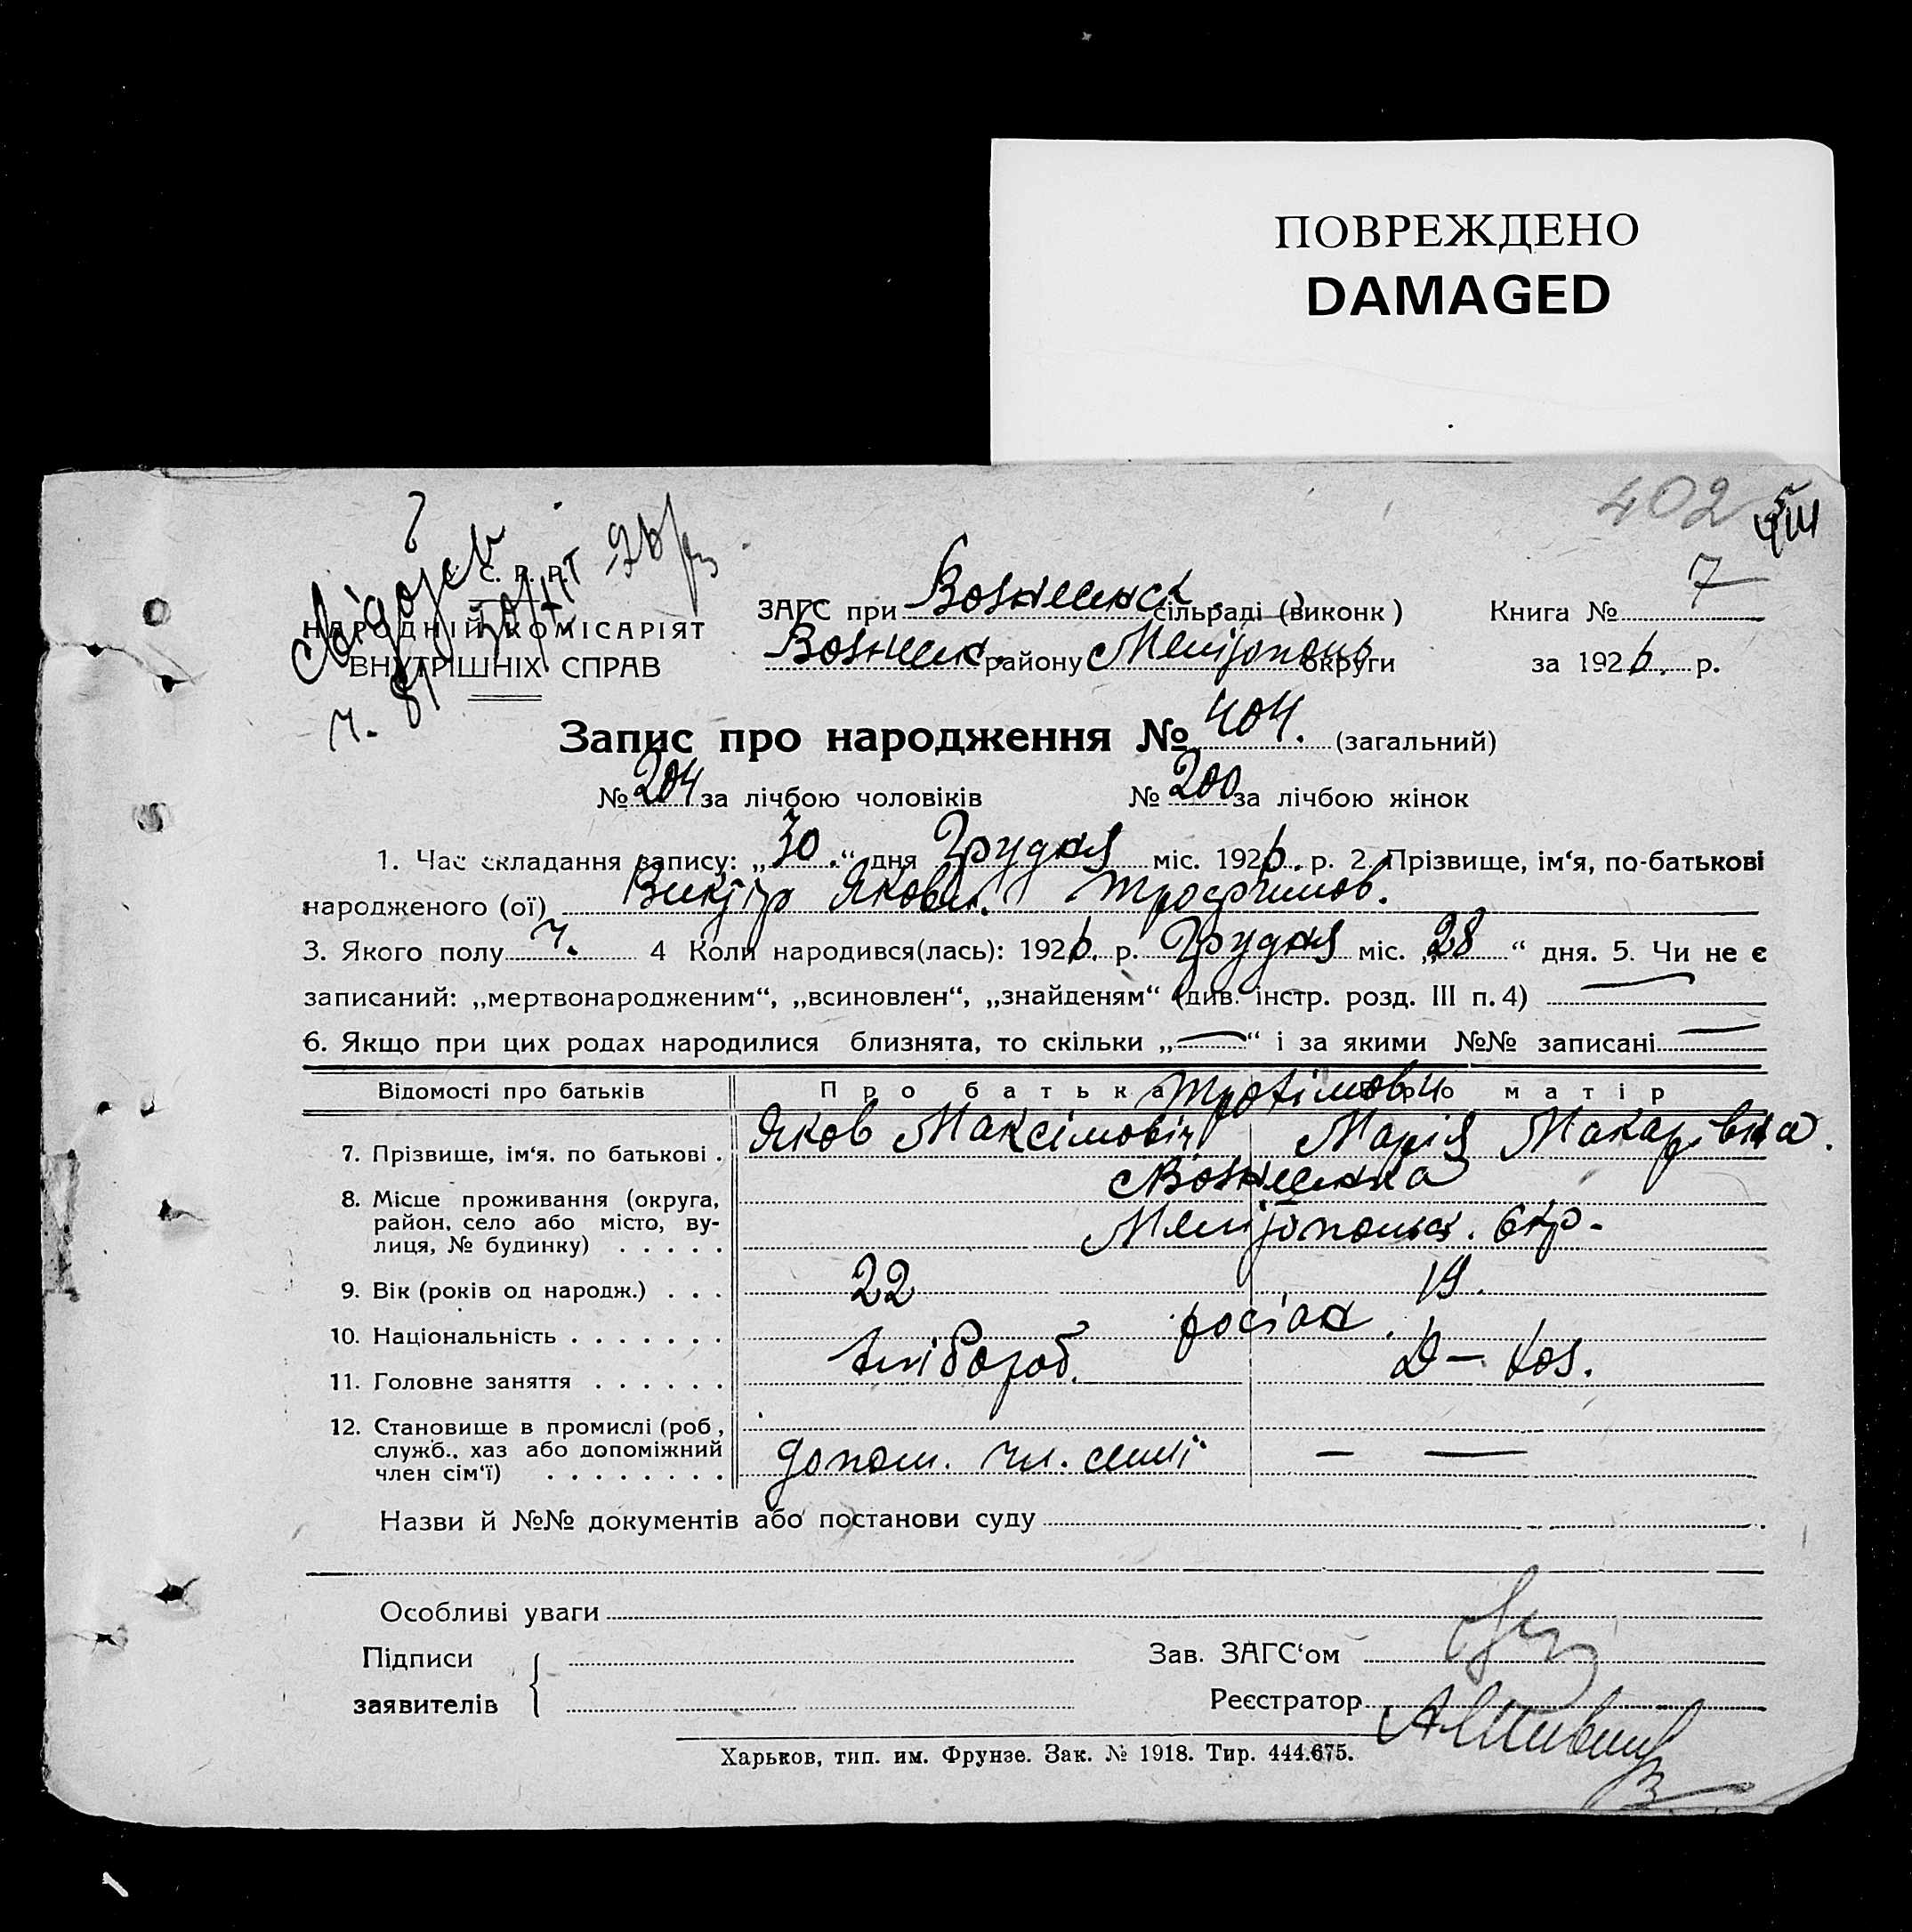 ПОВРЕЖДЕНО
DAMAGED
402
7
С. Р. Р.
НАРОДНІЙ КОМІСАРІЯТ
ВНУТРІШНІХ СПРАВ
ЗАГС при Вознесенск. сільраді (виконк) Книга №
Вознесенск. району Меліτοполь округи за 1926. р.
Запис про народження № 404. (загальний)
№ 204 за лічбою чоловіків № 200 за лічбою жінок
1. Час складання запису: „30.“ дня Грудня міс. 1926. р. 2. Прізвище, ім‘я, по-батькові
народженого (ої) Виктір Яковл. Трофимов.
3. Якого полу ч. 4 Коли народився(лась): 1926. р. Грудня міс. „28“ дня. 5. Чи не є
записаний: „мертвонародженим“, „всиновлен“, „знайденям“ (див. інстр. розд. III п. 4) —
6. Якщо при цих родах народилися близнята, то скільки „—“ і за якими №№ записані —
Відомості про батьків Про батька Про матір
Трофімови
7. Прізвище, ім‘я, по батькові . Яков Максімовіч Марія Макарівна.
8. Місце проживання (округа, Вознесенка
район, село або місто, ву-
лиця, № будинку) . . . . . Мелітопольск. Окр.
9. Вік (років од народж.) . . . 22 19.
10. Національність . . . . . . . росіан.
11. Головне заняття . . . . . . хлібороб. Д — гос.
12. Становище в промислі (роб,
служб., хаз або допоміжний
член сім‘ї) . . . . . . . . допом. чл. семі — —
Назви й №№ документів або постанови суду
Особливі уваги
Підписи Зав. ЗАГС‘ом
заявителів Реєстратор
Харьков, тип. им. Фрунзе. Зак. № 1918. Тир. 444.675.